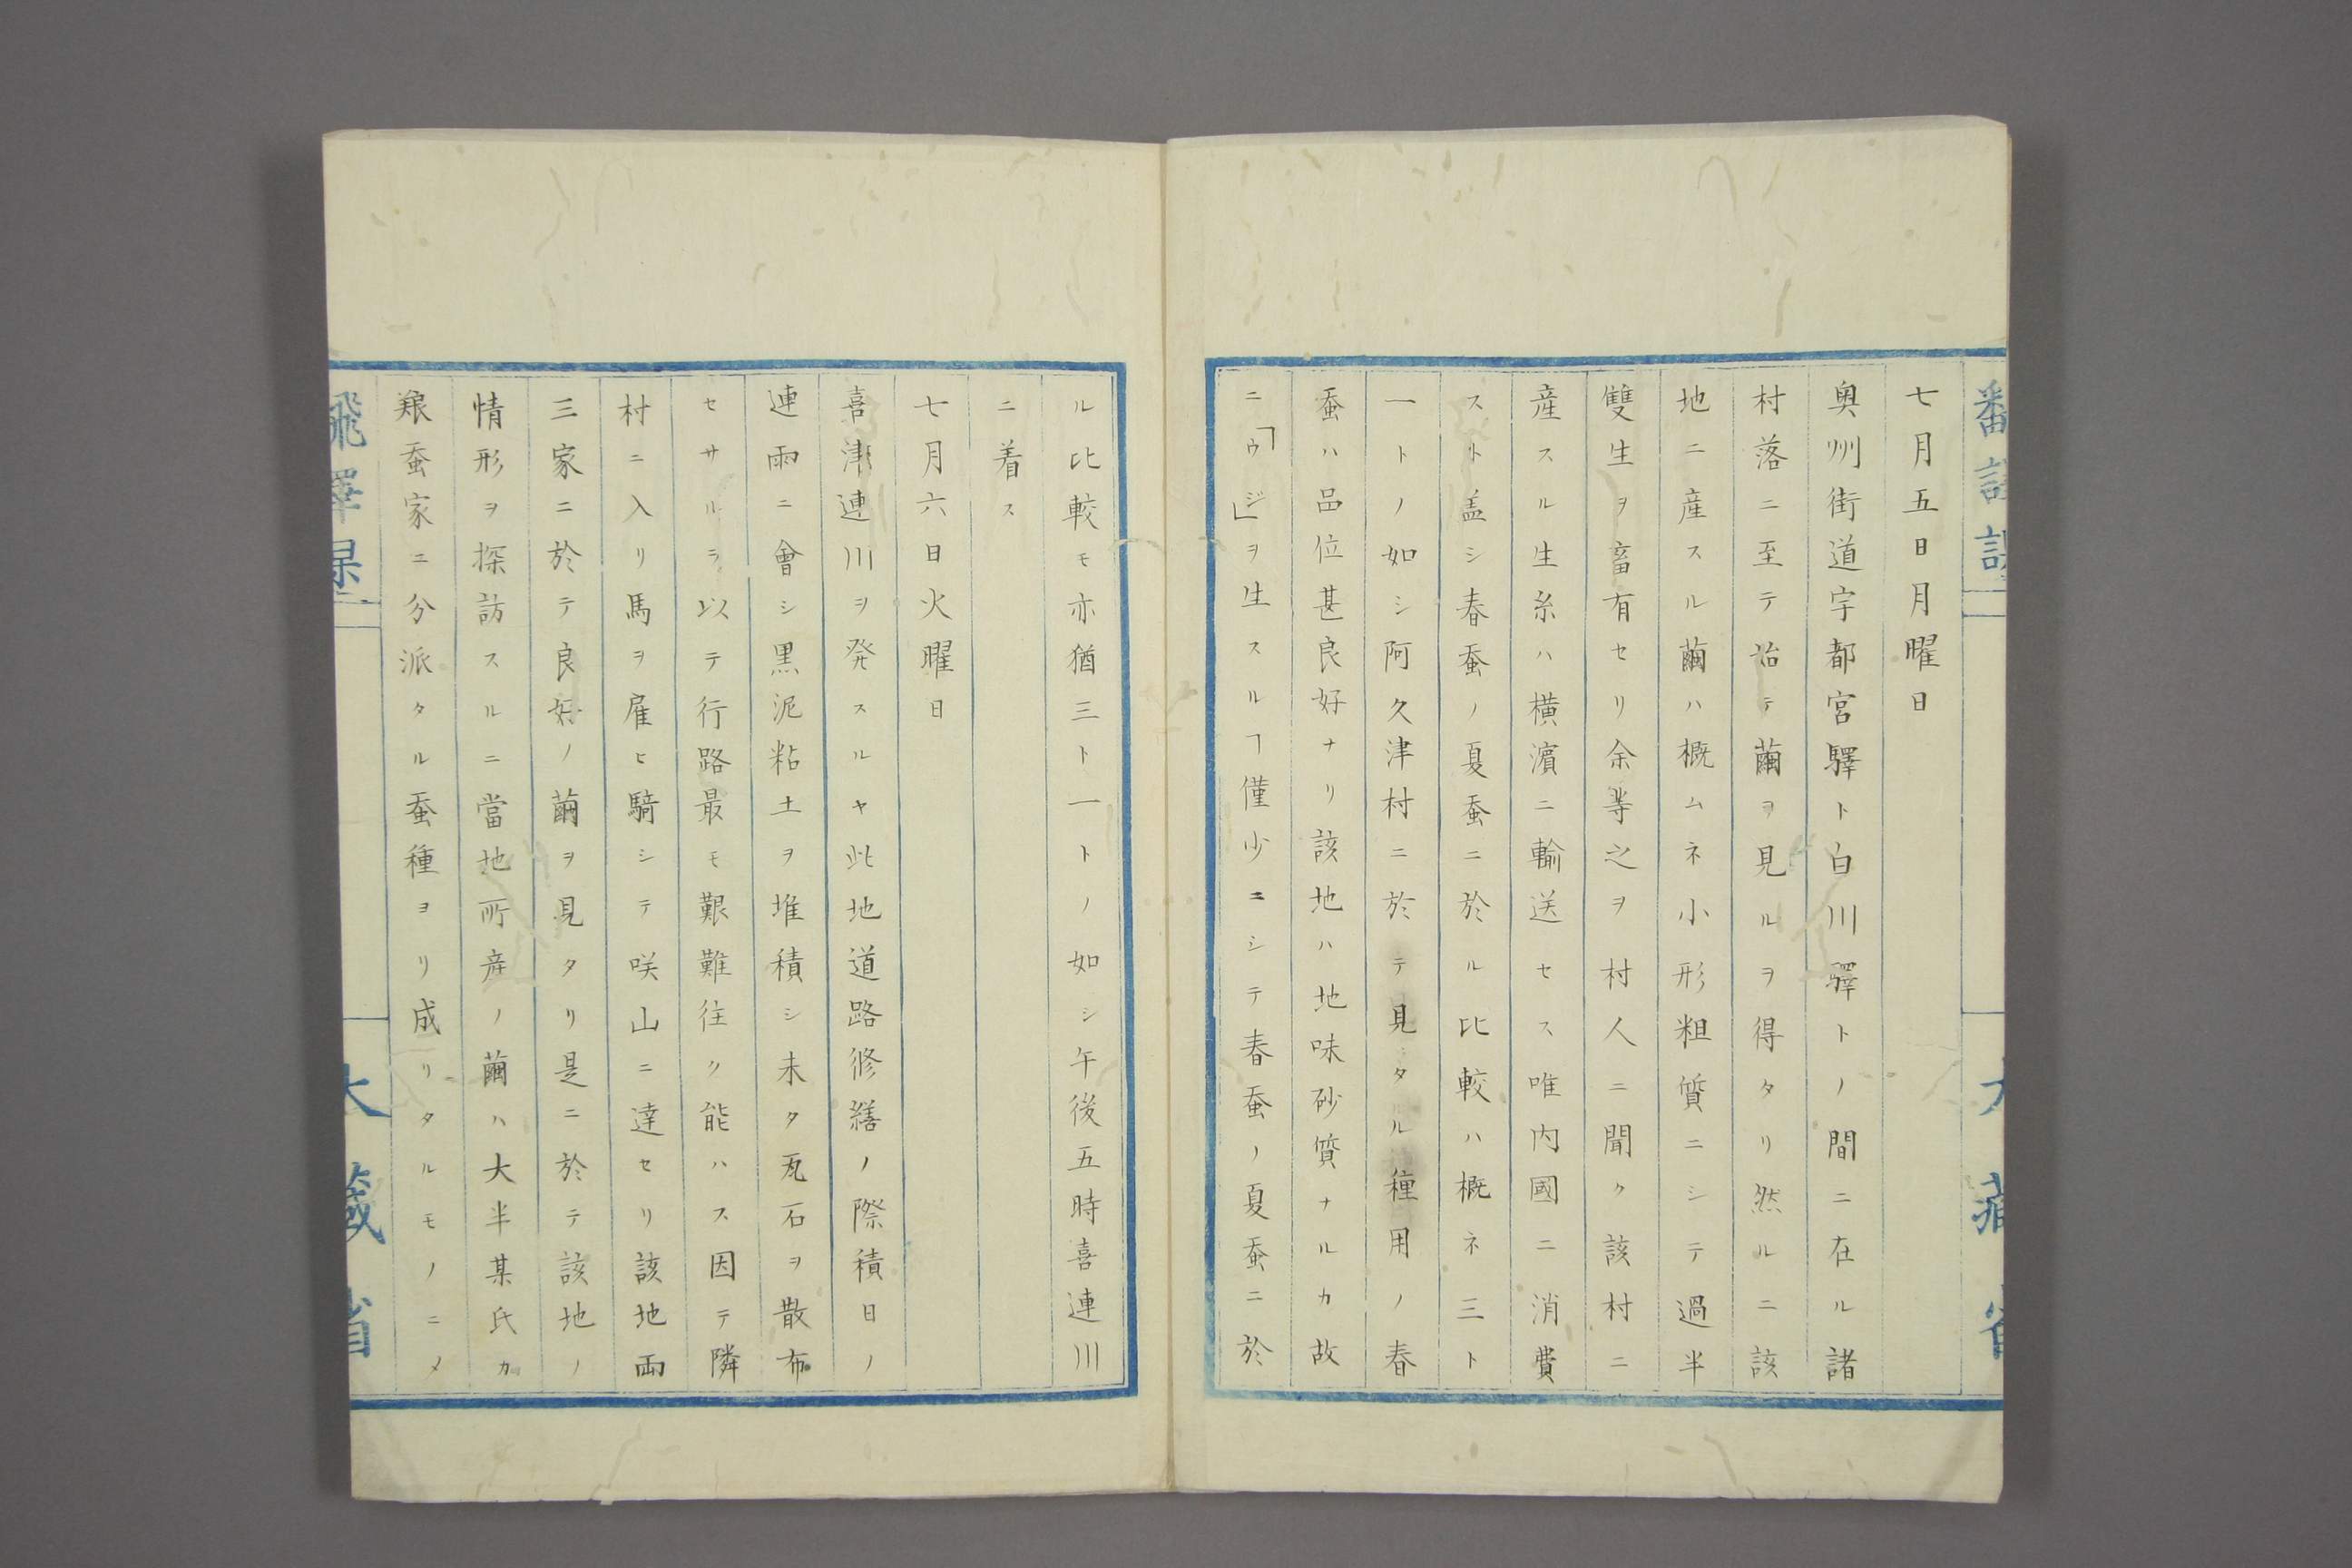 七月五日月曜日
奥州街道宇都宮驛ト白川驛トノ間ニ在ル諸
村落ニ至テ始テ繭ヲ見ルヲ得タリ然ルニ該
地ニ産スル繭ハ概ムネ小形粗質ニシテ過半
雙生ヲ畜有セリ余等之ヲ村人ニ聞ク該村ニ
産スル生糸ハ横濱ニ輸送セス唯内國ニ消費
スト盖シ春蚕ノ夏蚕ニ於ル比較ハ概ネ三ト
一トノ如シ阿久津村ニ於テ見タル種用ノ春
蚕ハ品位甚良好ナリ該地ハ地味砂質ナルカ故
ニ「ウジ」ヲ生スルヿ僅少ニシテ春蚕ノ夏蚕ニ於
ル比較モ亦猶三ト一トノ如シ午後五時喜連川
ニ着ス
七月六日火曜日
喜津連川ヲ発スルヤ此地道路修繕ノ際積日ノ
連雨ニ會シ黒泥粘土ヲ堆積シ未タ瓦石ヲ散布
セサルヲ以テ行路最モ艱難往ク能ハス因テ隣
村ニ入リ馬ヲ雇ヒ騎シテ咲山ニ達セリ該地両
三家ニ於テ良好ノ繭ヲ見タリ是ニ於テ該地ノ
情形ヲ探訪スルニ當地所産ノ繭ハ大半某氏カ
養蚕家ニ分派タル蚕種ヨリ成リタルモノニメ
大藏省